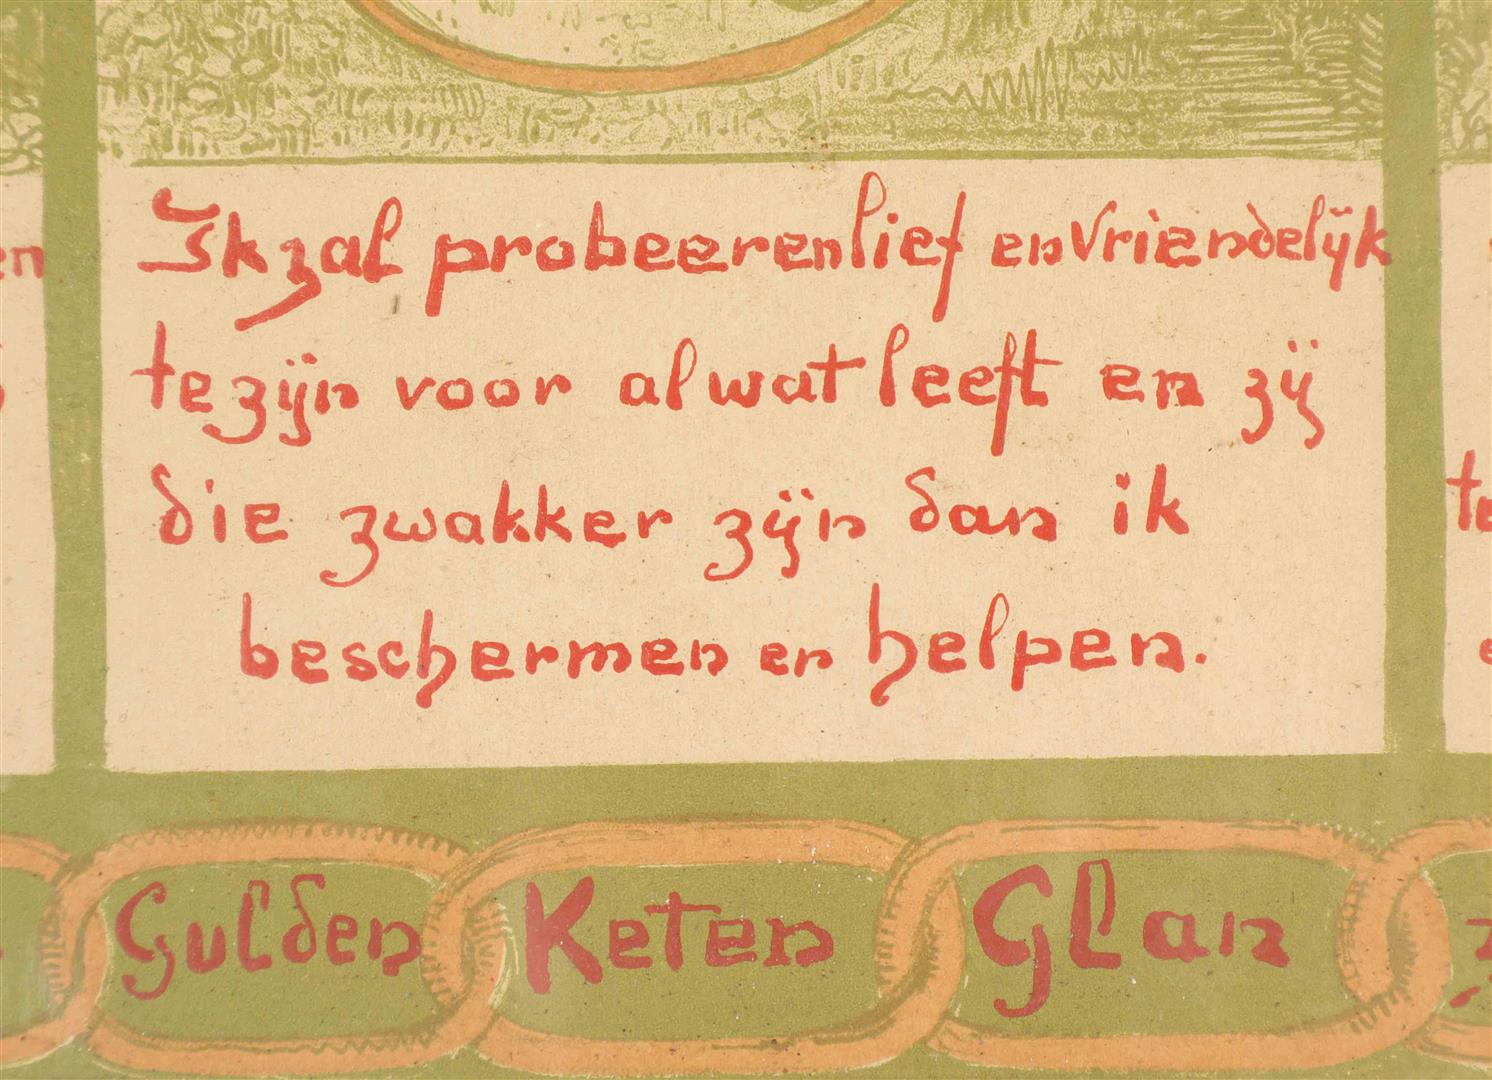 Ik zal probeeren lief en vriendelijk
te zijn voor al wat leeft en zij
die zwakker zijn dan ik
beschermen en helpen.
Gulden Keten Glan